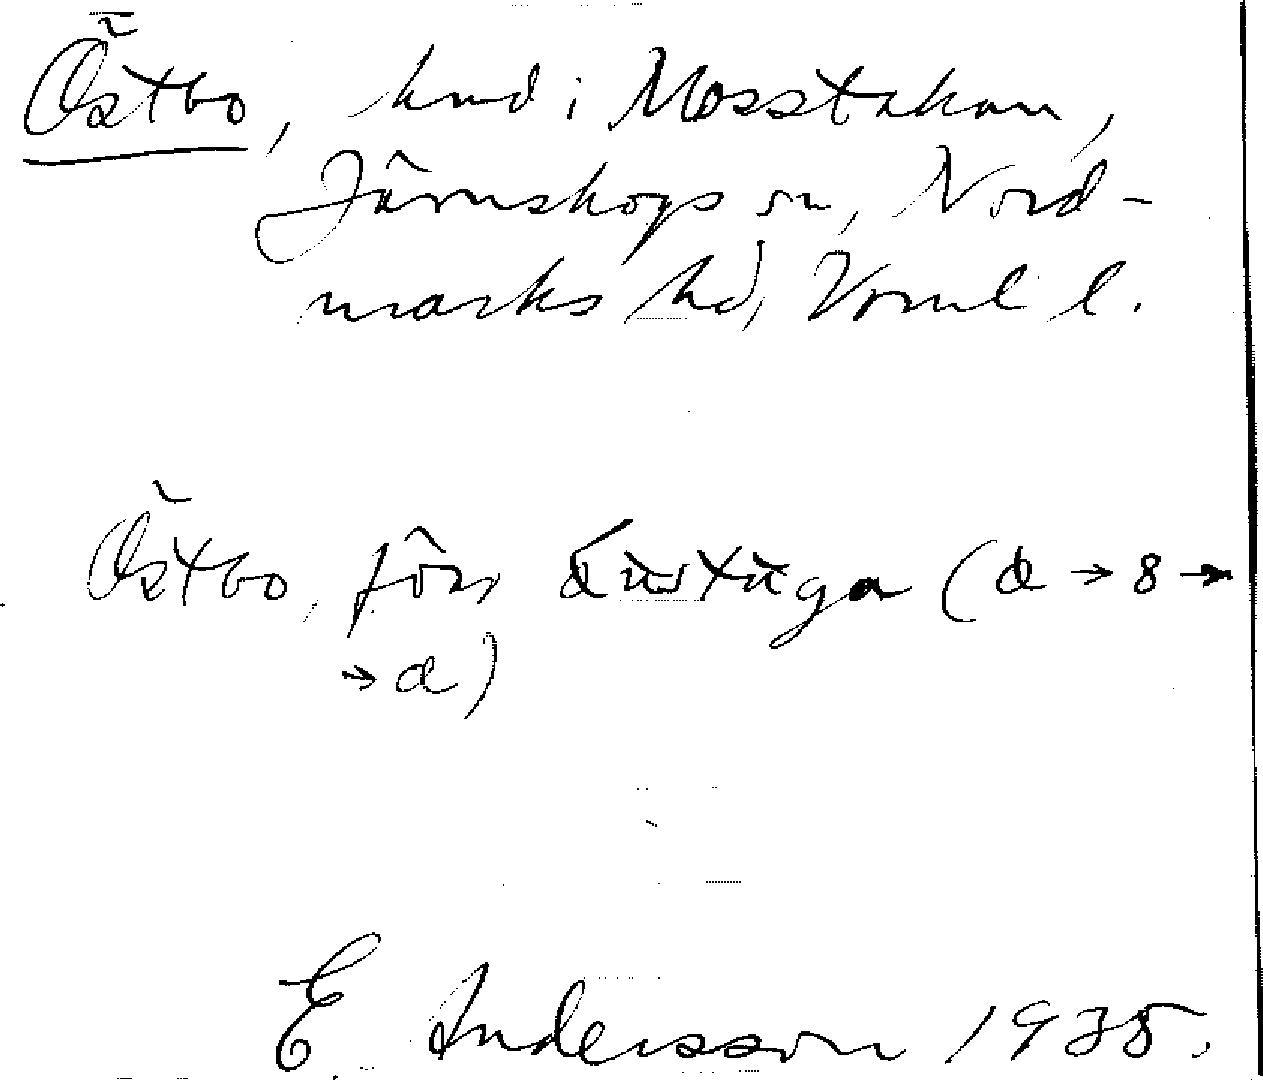 Östbo, hmd i Mosstakan,
Järnskogs sn, Nord-
marks hd, Vrml l.
Östbo, förr (d → 8 →
→ a)
E. Andersson 1935.